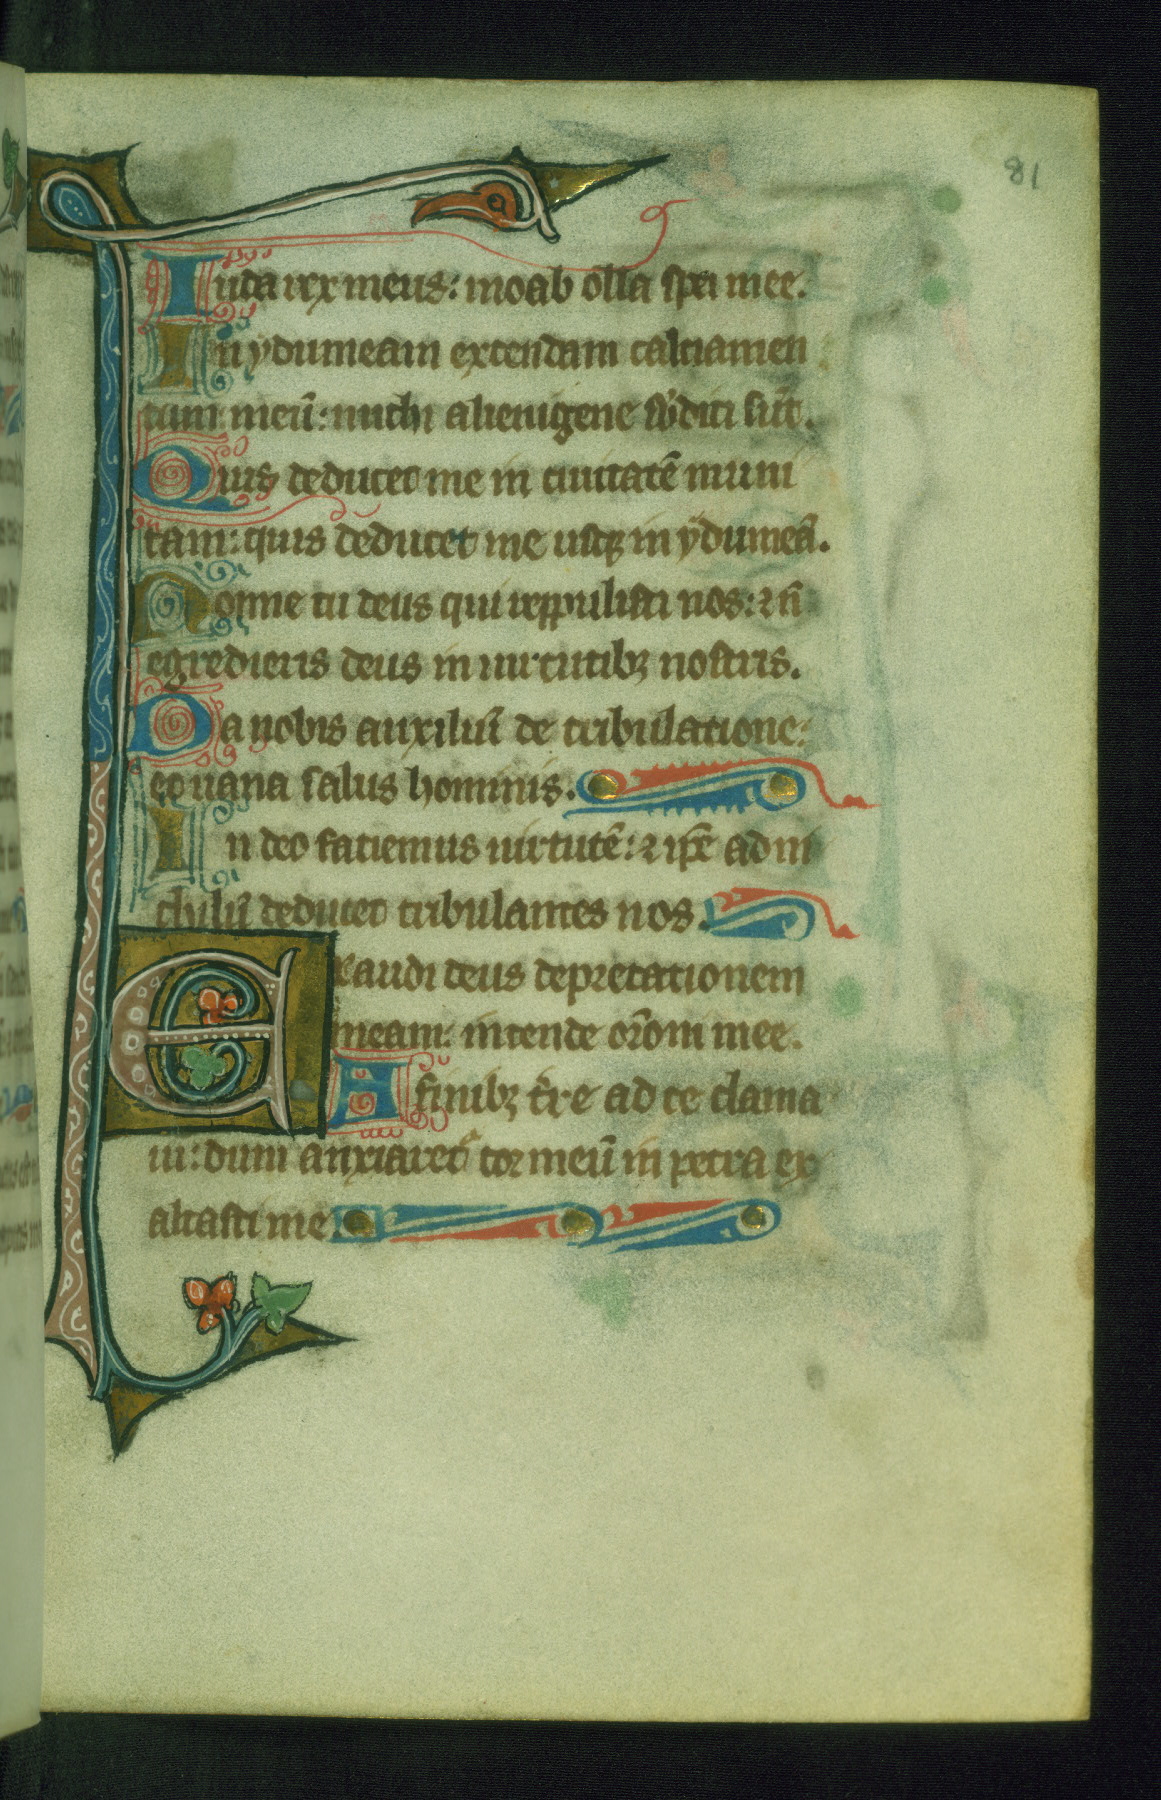 81
Iuda rex meus: moab olla spei mee.
In ydumeam extendam calciamen
tum meũ: michi alienigene sb̾diti sũt.
Quis deducet me in ciuitatẽ muni
tam: quis deducet me usqꝫ in ydumeã.
Nonne tu deus qui reppulisti nos: ⁊ ñ
egredieris deus in uirtutibꝫ nostris.
Da nobis auxiliũ de tribulatione:
et uana salus hominis.
In deo faciemus uirtutẽ: ⁊ ip̃e ad ni
chilũ deducet tribulantes nos.
Exaudi deus deprecationem
meam: intende or̃oni mee.
A finibꝫ t̾re ad te clama
ui: dum anxiaret᷑ cor meũ in petra ex
altasti me.